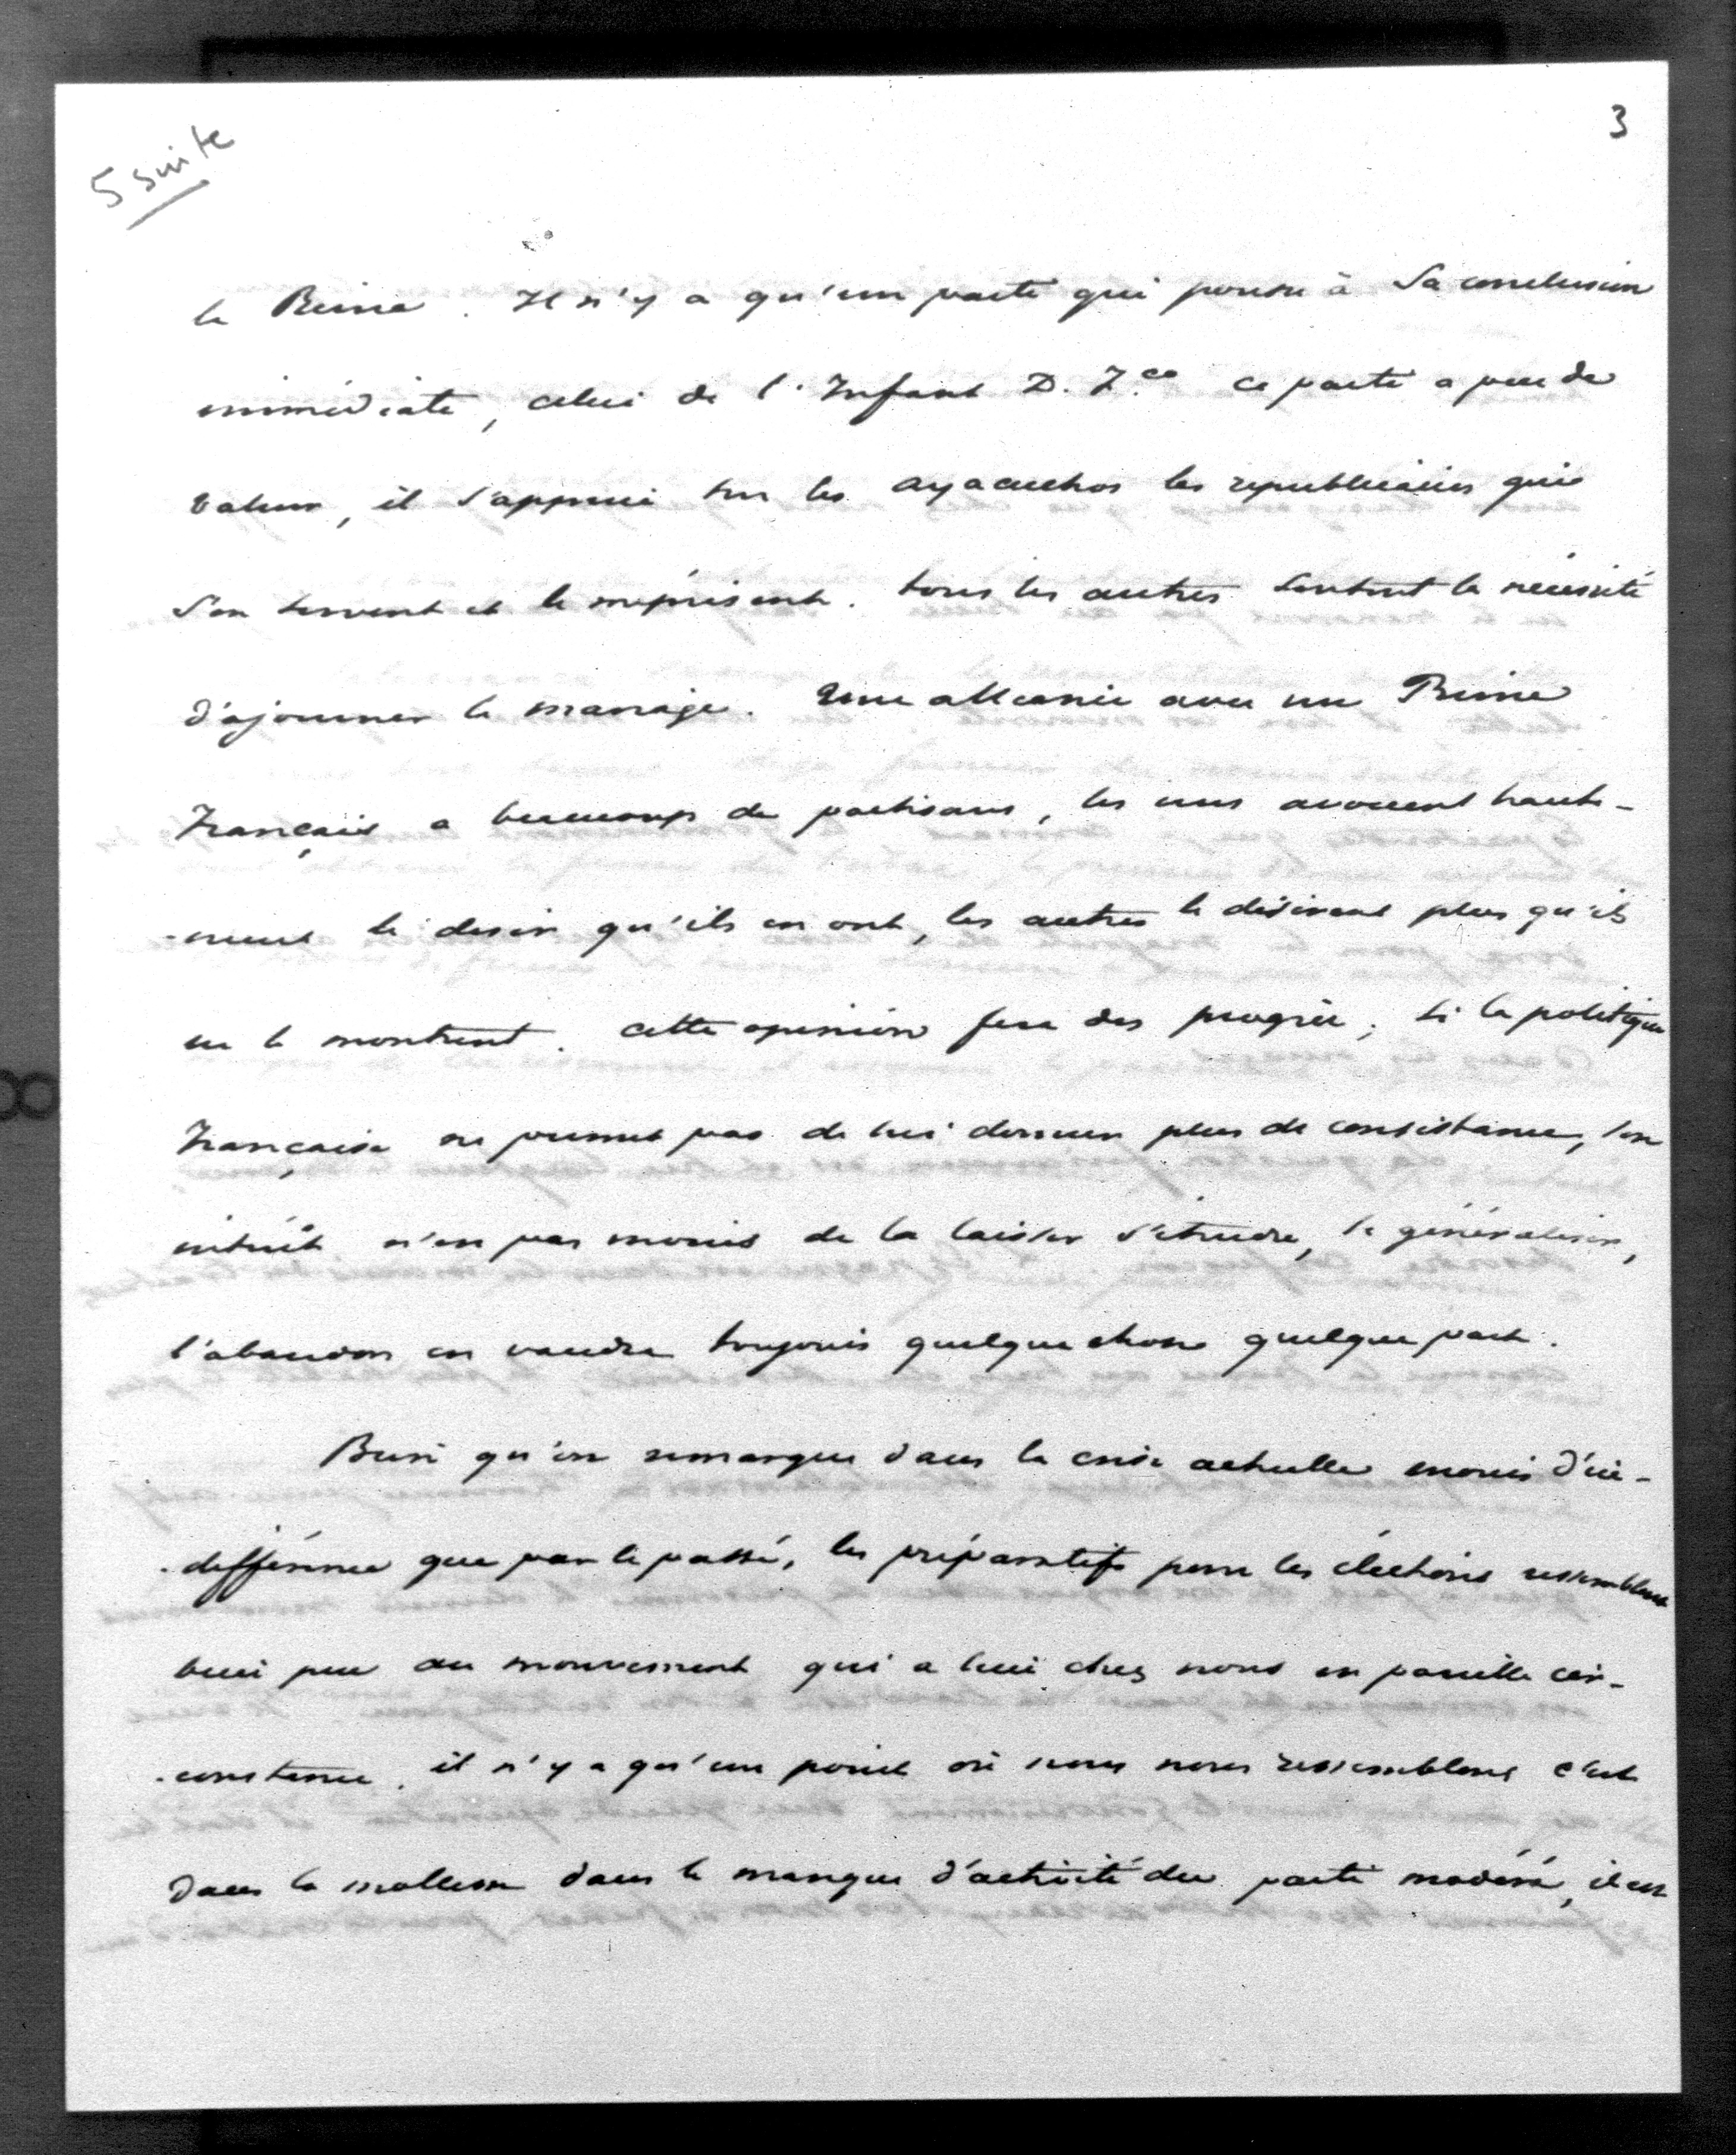 3
5 suite
la Reine. Il n'y a qu'un parti qui pousse à sa conclusion
immédiate, celui de l'Infant D. F.co ce parti a peu de
valeur, il s'appuie sur les ayacuchos les républicains qui
s'en servent et le méprisent. tous les autres sentent la nécessité
d'ajourner le mariage. Une alliance avec un Prince
Français a beaucoup de partisans, les uns avouent haute-
-ment le desir qu'ils en ont, les autres le désirent plus qu'ils
ne le montrent. cette opinion fera des progrès; si la politique
Française ne permet pas de lui donner plus de consistance, son
intérêt n'en pas moins de la laisser s'étendre, se généraliser,
l'abandon en vaudra toujours quelque chose quelque part.
Bien qu'on remarque dans la crise actuelle moins d'in-
-différence que par le passé, les préparatifs pour les élections ressemblent
bien peu au mouvement qui a lieu chez nous en pareille cir-
-constance. il n'y a qu'un point où nous nous ressemblons c'est
dans la mollesse dans le manque d'activité du parti modéré, il est